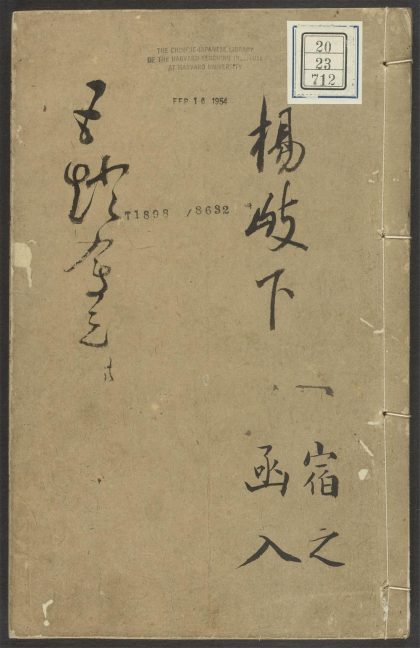 THE CHINESE-JAPANESE LIBRARY
OF THE HARVARD-YENCHING INSTITUTE
AT HARVARD UNIVERSITY
FEB 16 1954
20
23
712
楊岐下 一
宿之
函入
五燈會元
T1898 /8632